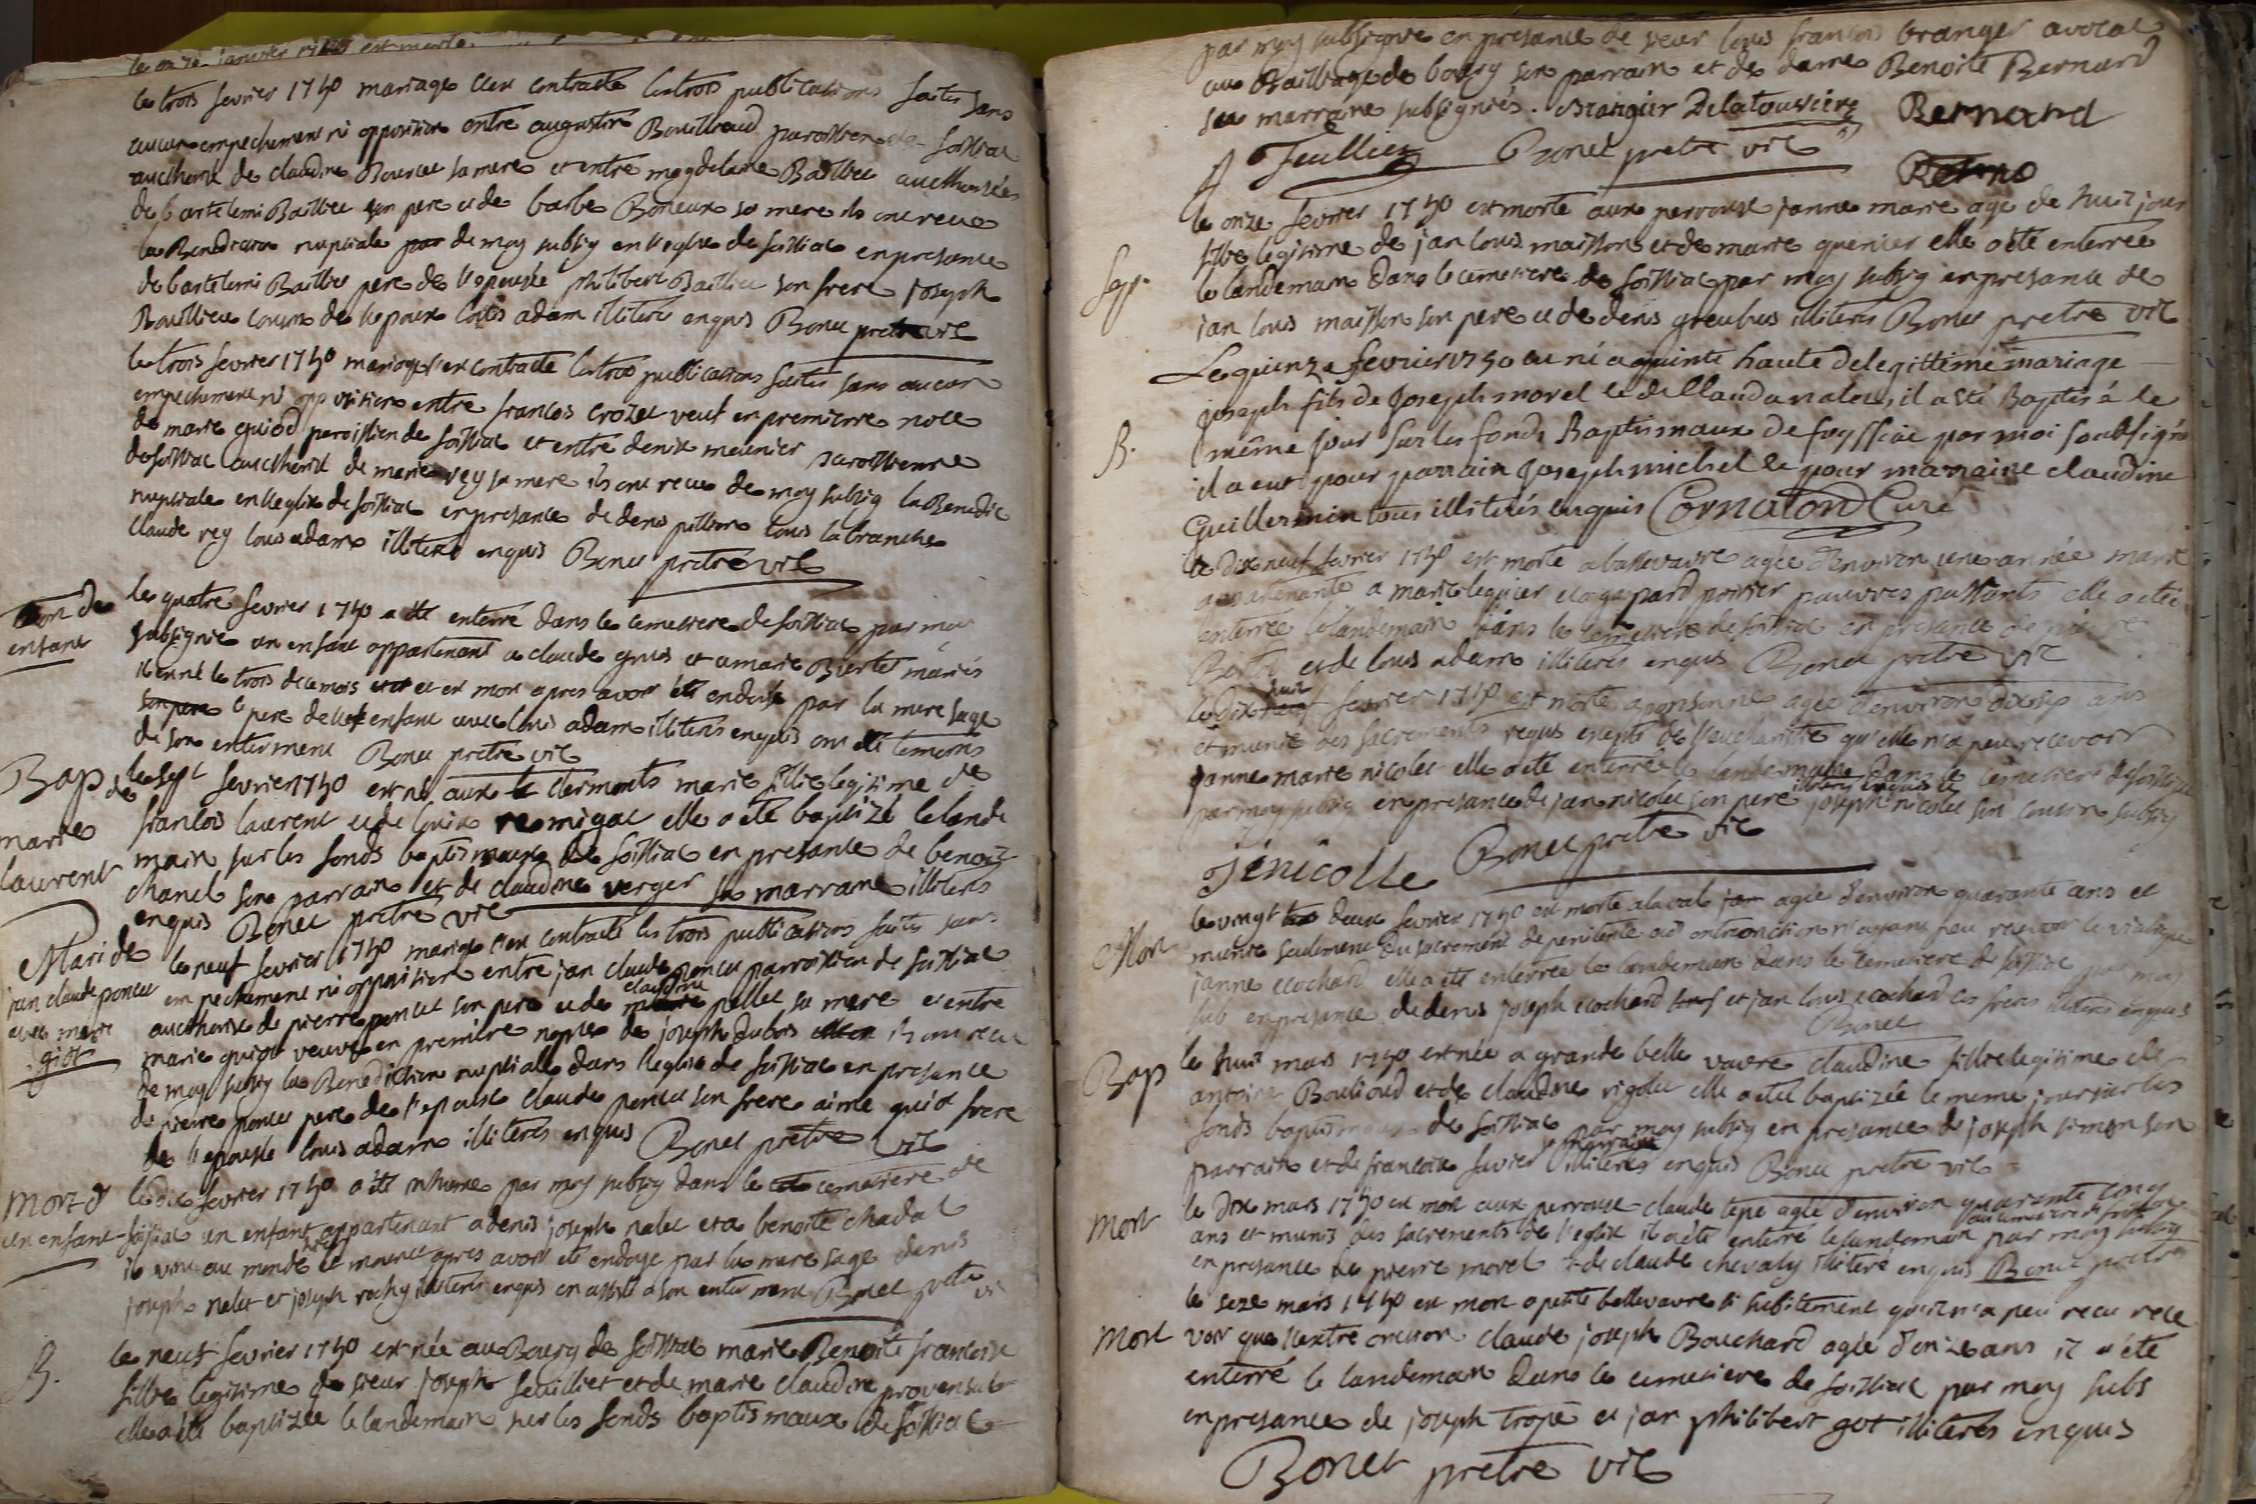 le trois fevrier 1750 mariage s'est contracté les trois publications faites sans
aucun empechement ni opposition entre augustin Bouillioud paroissien de foissiat
aucthorisé de claudine Bourcet sa mere et entre magdelaine Baillier aucthorisée
de bartelemi Baillier son pere et de barbe Boneux sa mere ils ont receu
la Benediction nuptiale par de moy subsig en l'eglise de foissiat en presance
de bartelemi Baillier pere de l'epouse philibert Baillier son frere joseph
Bouillieu cousin de l'epoux louis adam illiteres enquis Bonet pretre vic
le trois fevrier 1750 mariage s'est contracté les trois publications faites sans aucun
empechement ni opposition entre francois crozet veuf en premiere noce
de marie guiod paroissien de foissiat et entre denise meunier paroissienne
de foissiat aucthorisé de marie rey sa mere ils ont receu de moy subsig la Benedic
nuptiale en l'eglise de foissiat en presance de denis pillion louis la branche
claude rey louis adam illiteres enquis Bonet pretre vic
enfant
le quatre fevrier 1750 a eté enterré dans le cemetiere de foissiat par moy
subsigné un enfant appartenant a claude gruis et a marie Bierle mariés
il est né le trois de ce mois et est mort apres avoir eté endoyé par la mere sage
son pere le pere de l'enfant avec louis adam illiteres enquis ont eté temoins
de son enterment Bonet pretre vic
Bap de
marie
laurent
le sept fevrier 1750 est né aux clermonts marie fillie legitime de
francois laurent et de louise remigat elle a eté baptizé le lande
main sur les fonds baptismaux de foissiat en presance de benoit
chanel son parrain et de claudine verger sa marraine illiteres
enquis Bonet pretre vic
Mari de
jean claude poncet
avec marie
giot
le neuf fevrier 1750 mariage s'est contracté les trois publications faites sans
empechement ni opposition entre jan claude poncet parroissien de foissiat
aucthorisé de pierre poncet son pere et de claudine pellet sa mere et entre
marie guiot veuve en premiere nopce de joseph dubois ils ont receu
de moy subsig la Benediction nuptialle dans l'eglise de foissiat en presance
de pierre poncet pere de l'epoux claude poncet son frere aime guiot frere
de l'epouse louis adam illiteres enquis Bonet pretre vic
Mort d
un enfant
le dix fevrier 1750 a eté inhumé par moy subsig dans le cemetiere de
foissiat un enfant appartenant a denis joseph nalet et a benoite chadal
il vint au monde et mourut apres avoir eté endoyé par la mere sage denis
joseph nalet et joseph rochy illiteres enquis on assisté a son enterrment Bonet pretre vic
B.
le neuf fevrier 1750 est née au Bourg de foissiat marie Benoite francoise
fillie legitime de sieur joseph feuilliet et de marie claudine provensal
elle a eté baptizée le landemain sur les fonds baptismaux de foissiat
par moy subsigné en presance de sieur louis francois branger avocat
au Bailliage de bourg son parrain et de dame Benoite Bernard
sa marraine subsignés. Brangier Delatoursiere Bernard
J Feuilliet Bonet pretre vic
Sep.
le onze fevrier 1750 est morte aux perrouse janne marie agé de huit jour
fillie legitime de jan louis maisson et de marie guenier elle a eté enterrée
le landemain dans le cemetiere de foissiat par moy subsig en presance de
jan louis maisson son pere et de denis greubus illiteres Bonet pretre vic
B.
Le quinze fevrier 1750 est né a quinte haute de legittime mariage
joseph fils de Joseph morel et de Claudanalet, il a eté Baptisé le
même jour sur les fonds Baptismaux de foyssiat par moi soubsigné
il a eut pour parrain Joseph michel et pour marraine claudine
Guillermin tous illiterés enquis Cornaton Curé
le dix neuf fevrier 1750 est morte a bellevavre agée d'environ une année marie
appartenante a marie leguier et a gaspard poirier pauvres passants elle a eté
enterrée le landemain dans le cemetiere de foissiat en presance de
et de louis adam illiteres enquis Bonet pretre vic
le dix huit fevrier 1750 est morte a agée d'environ dix sept ans
et munie des sacrements requis exepté de l'eucharistie qu'elle n'a peu recevoir
janne marie nicolet elle a eté enterrée le landemain dans le cemetiere de foissiat
par moy subsig en presance de jan nicolet son pere illitere enquis et joseph nicolet son cousin subsig
J nicolle Bonet pretre vic
Mort
le vingt deux fevrier 1750 est morte a laval agée d'environ quarante ans et
munie seulement du sacrement de penitence et d'extreonction n'ayant peu recevoir le viatique
janne cochard elle a eté enterrée le landemain dans le cemetiere de foissiat par moy
sub en presance de denis joseph cochard et jan louis cochard ses freres illiteres enquis
Bonet
Bap
le huit mars 1750 est née a grande belle vavre claudine fillie legitime de
antoine Boulioud et de claudine rigolet elle a eté baptizée le meme jour sur les
fonds baptismaux de foissiat par moy subsig en presance de joseph simon son
parrain et de francoise favier sa marraine illiteres enquis Bonet pretre vic
Mort
le dix mars 1750 est mort aux perrouse claude tepe agée d'environ quarante cinq
ans et munis des sacrements de l'eglise il a eté enterré le landemain au cemetiere de foissiat par moy subsig
en presance de pierre morel et de claude chevaly illiteré enquis Bonet pretre
Mort
le seze mars 1750 est mort a petite bellevavre si subitement qu'il n'a peu rece
voir que l'extre onction claude joseph Bouchard agée d'onze ans il a eté
enterré le landemain dans le cemetiere de foissiat par moy subs
en presance de joseph tropé et jan philibert got illiteres enquis
Bonet pretre vic